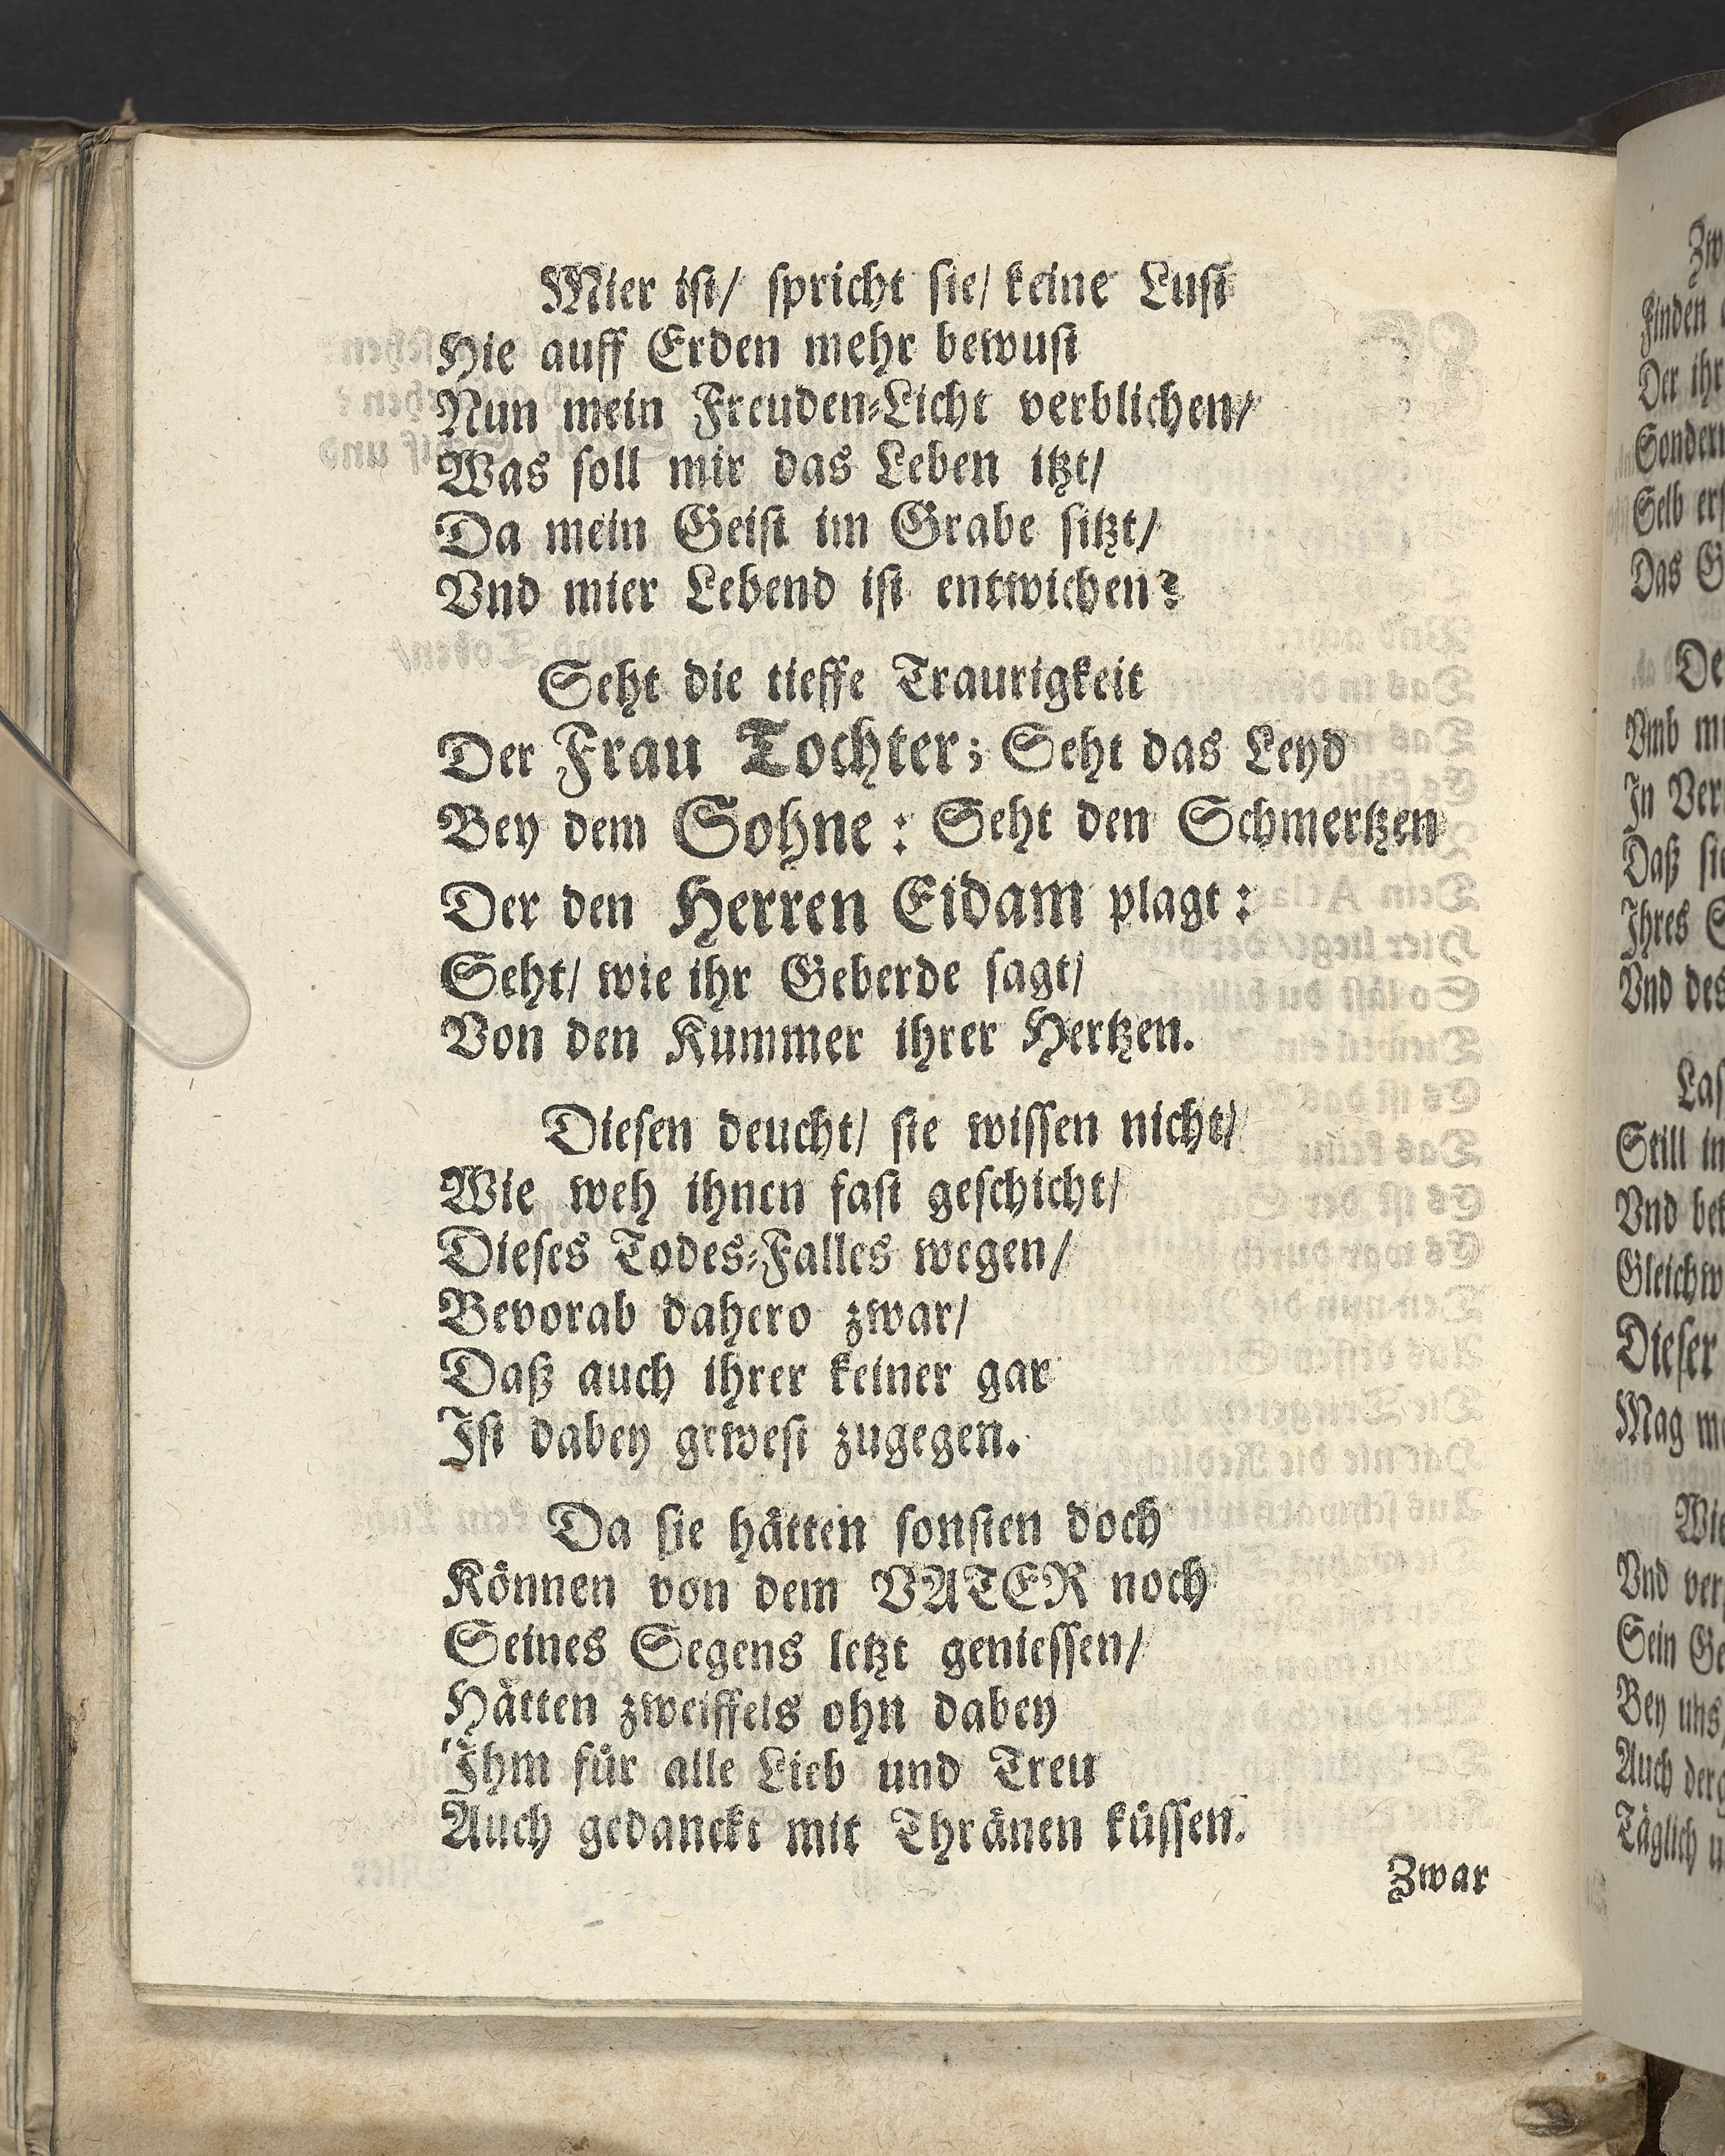 Mier ist/ spricht sie/ keine Lust
Hie auff Erden mehr bewust
Nun mein Freuden-Licht verblichen/
Was soll mir das Leben itzt/
Da mein Geist im Grabe sitzt/
Vnd mier Lebend ist entwichen?
Seht die tieffe Traurigkeit
Der Frau Tochter; Seht das Leyd
Bey dem Sohne: Seht den Schmertzen
Der den Herren Eidam plagt:
Seht/ wie ihr Geberde sagt/
Von den Kummer ihrer Hertzen.
Diesen deucht/ sie wissen nicht/
Wie weh ihnen fast geschicht/
Dieses Todes-Falles wegen/
Bevorab dahero zwar/
Daß auch ihrer keiner gar
Ist dabey gewest zugegen.
Da sie hätten sonsten doch
Können von dem VATER noch
Seines Segens letzt geniessen/
Hätten zweiffels ohn dabey
Ihm für alle Lieb und Treu
Auch gedanckt mit Thränen küssen.
Zwar
Finden
Der ihr
Sondern
Das
In Ver
Daß sie
Ihres
Vnd des
Still in
Vnd
Gleichw
Dieser
Mag
Wie
Vnd ver
Sein Ge
Bey uns
Auch
Täglich